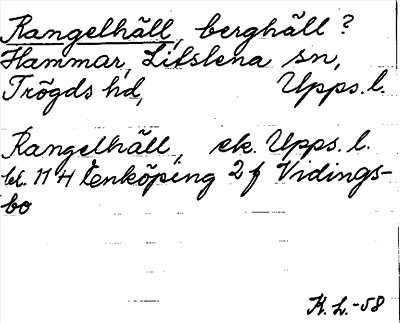 Rangelhäll, berghäll?
Hammar, Litslena sn,
Trögds hd, Upps. l.
Rangelhäll, ek. Upps. l.
bl. 11 H Enköping 2 f Vidings-
bo
K. L. -58